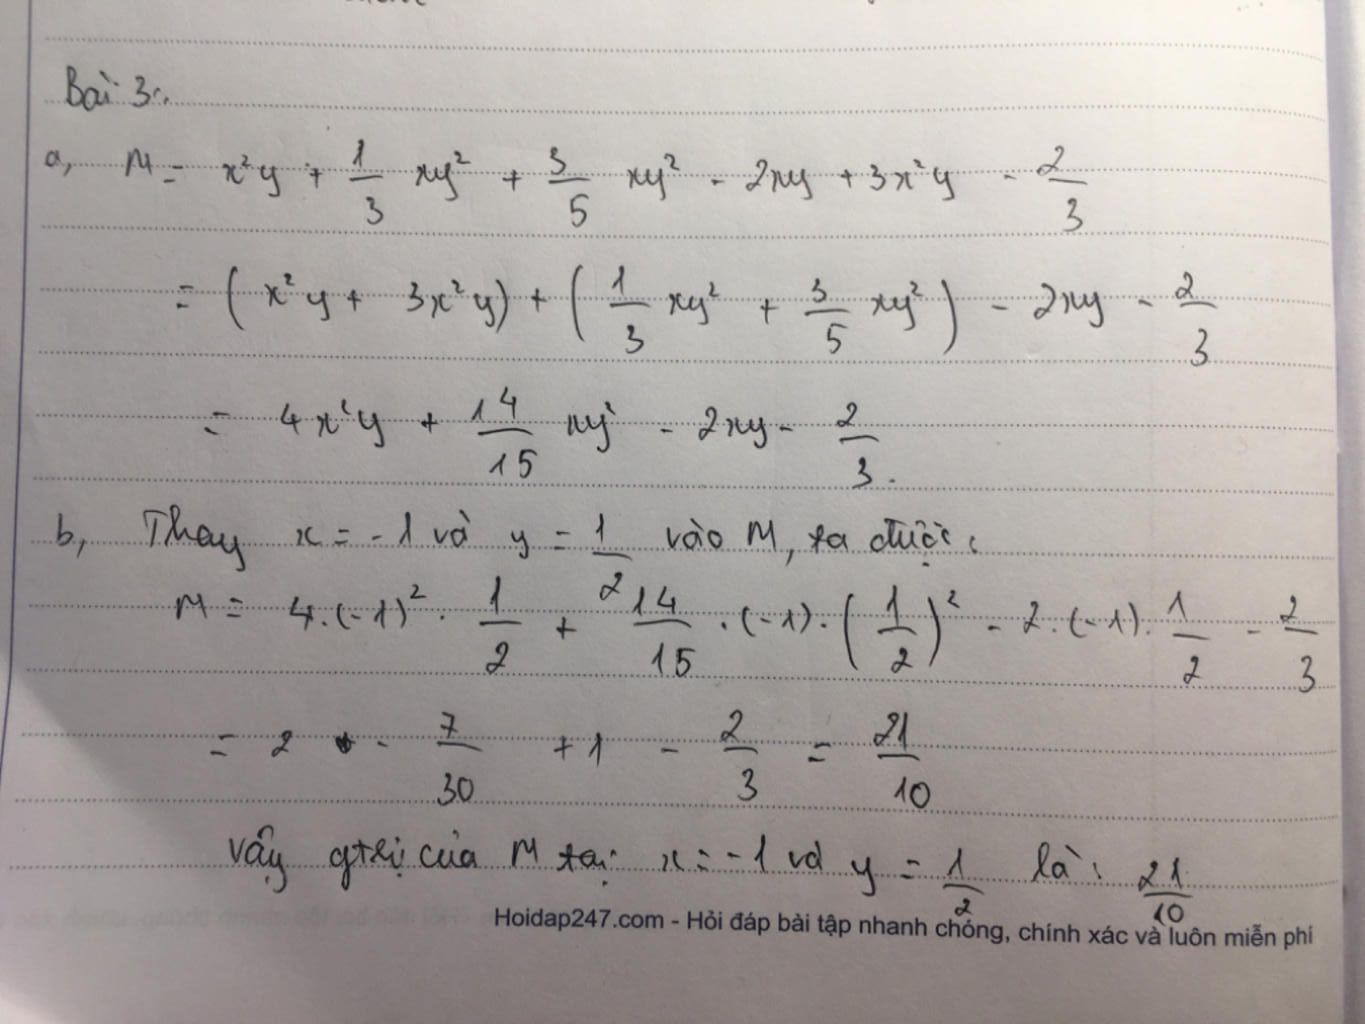 Bài 3:
a, M = x²y + 1/3 xy² + 3/5 xy² - 2xy + 3x²y - 2/3
= (x²y + 3x²y) + (1/3 xy² + 3/5 xy²) - 2xy - 2/3
= 4x²y + 14/15 xy² - 2xy - 2/3.
b, Thay x = -1 và y = 1/2 vào M, ta được:
M = 4.(-1)².1/2 + 14/15.(-1).(1/2)² - 2.(-1).1/2 - 2/3
= 2 - 7/30 + 1 - 2/3 = 21/10
Vậy gtrị của M tại x = -1 và y = 1/2 là: 21/10
Hoidap247.com - Hỏi đáp bài tập nhanh chóng, chính xác và luôn miễn phí